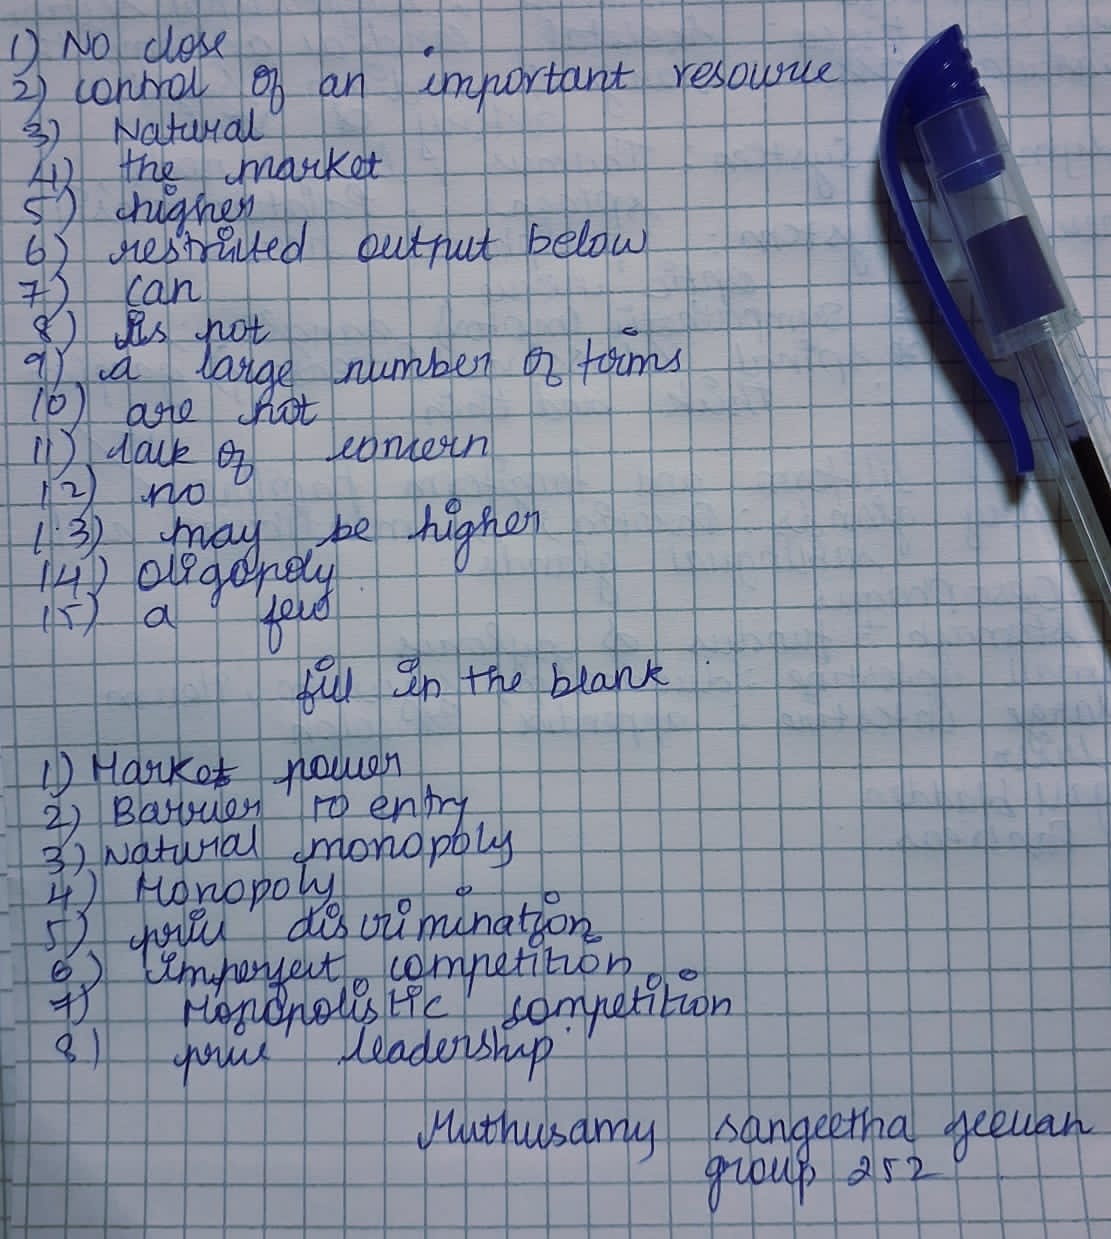 1) No close
2) control of an important resource
3) Natural
4) the market
5) higher
6) restricted output below
7) can
8) Is not
9) a large number of firms
10) are not
11) lack of concern
12) no
13) may be higher
14) oligopoly
15) a few
fill in the blank
1) Market power
2) Barrier to entry
3) Natural monopoly
4) Monopoly
5) price discrimination
6) Imperfect competition
7) Monopolistic competition
8) price leadership
Muthusamy sangeetha jeevan
group 252